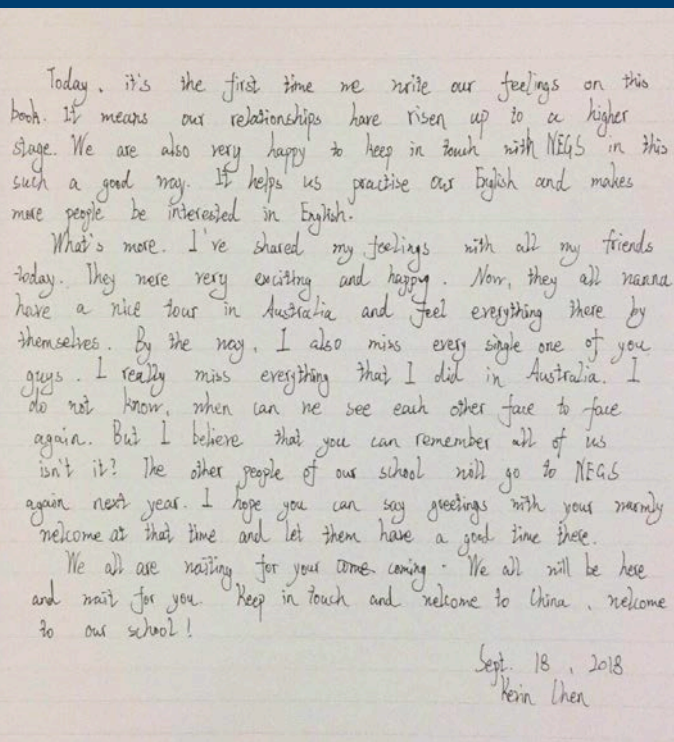 Today, it's the first time we write our feelings on this
book. It means our relationships have risen up to a higher
stage. We are also very happy to keep in touch with NEGS in this
such a good way. It helps us practise our English and makes
more people be interested in English.
What's more. I've shared my feelings with all my friends
today. They were very exciting and happy. Now, they all wanna
have a nice tour in Australia and feel everything there by
themselves. By the way, I also miss every single one of you
guys. I really miss everything that I did in Australia. I
do not know, when can we see each other face to face
again. But I believe that you can remember all of us
isn't it? The other people of our school will go to NEGS
again next year. I hope you can say greetings with your warmly
welcome at that time and let them have a good time there.
We all are waiting for your come coming. We all will be here
and wait for you. Keep in touch and welcome to China, welcome
to our school!
Sept. 18, 2018
Kevin Chen